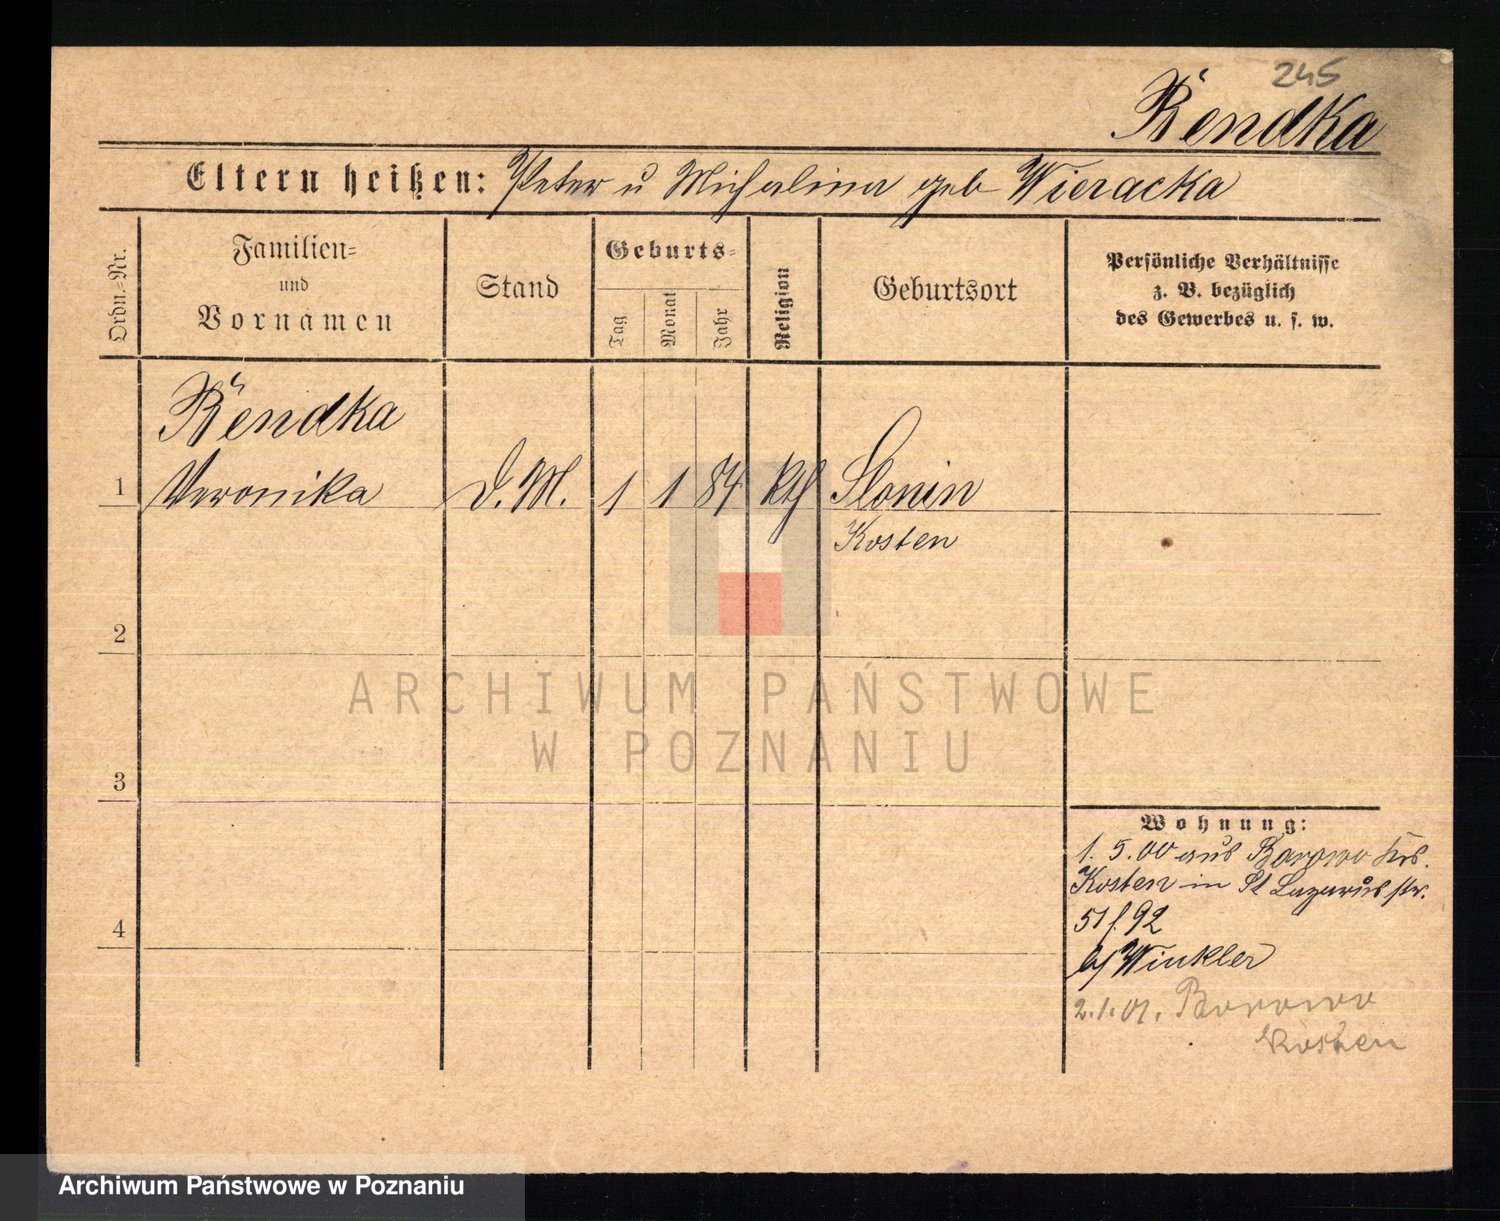 245
Rendka
Eltern heißen: Peter u Michalina geb Wieracka
Ordn.-Nr.
Familien-
und
Vornamen
Stand
Geburts-
Tag
Monat
Jahr
Religion
Geburtsort
Persönliche Verhältnisse
z. B. bezüglich
des Gewerbes u. s. w.
Rendka
1 Veronika D. M. 1 1 84 kth Slonin
Kosten
2
ARCHIWUM PAŃSTWOWE
W POZNANIU
3
Wohnung:
1. 5. 00 aus Borowo Krs.
Kosten in St Lazarusstr.
4
51 f. 92
b/ Winkler
2. 1. 01. Borowo
Kosten
Archiwum Państwowe w Poznaniu